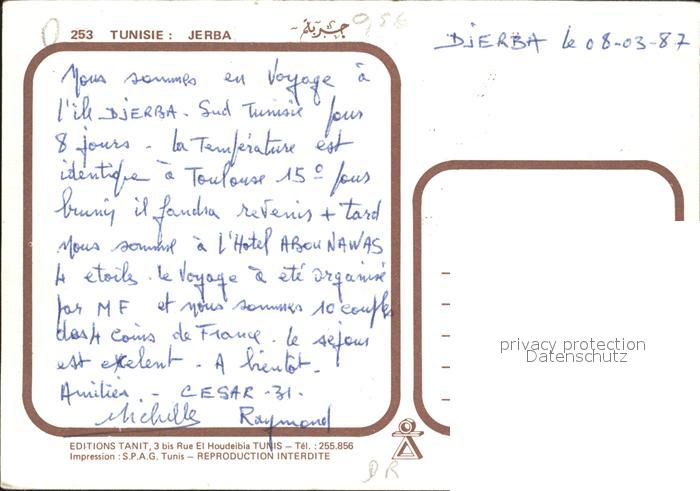 253 TUNISIE : JERBA
DJERBA le 08-03-87
Nous sommes en Voyage à
l'ile DJERBA. Sud Tunisie pour
8 jours - la Température est
identique à Toulouse 15° pour
brunir il faudra revenir + tard
Nous somme à l'Hotel ABOU NAWAS
4 etoiles. le Voyage à été organisé
par MF et nous sommes 10 couples
des 4 coins de France. le séjour
est exelent. A bientot.
Amitiés. - CESAR -31-
Michelle Raymond
EDITIONS TANIT, 3 bis Rue El Houdeibia TUNIS – Tél. : 255.856
Impression : S.P.A.G. Tunis – REPRODUCTION INTERDITE
privacy protection
Datenschutz
DR